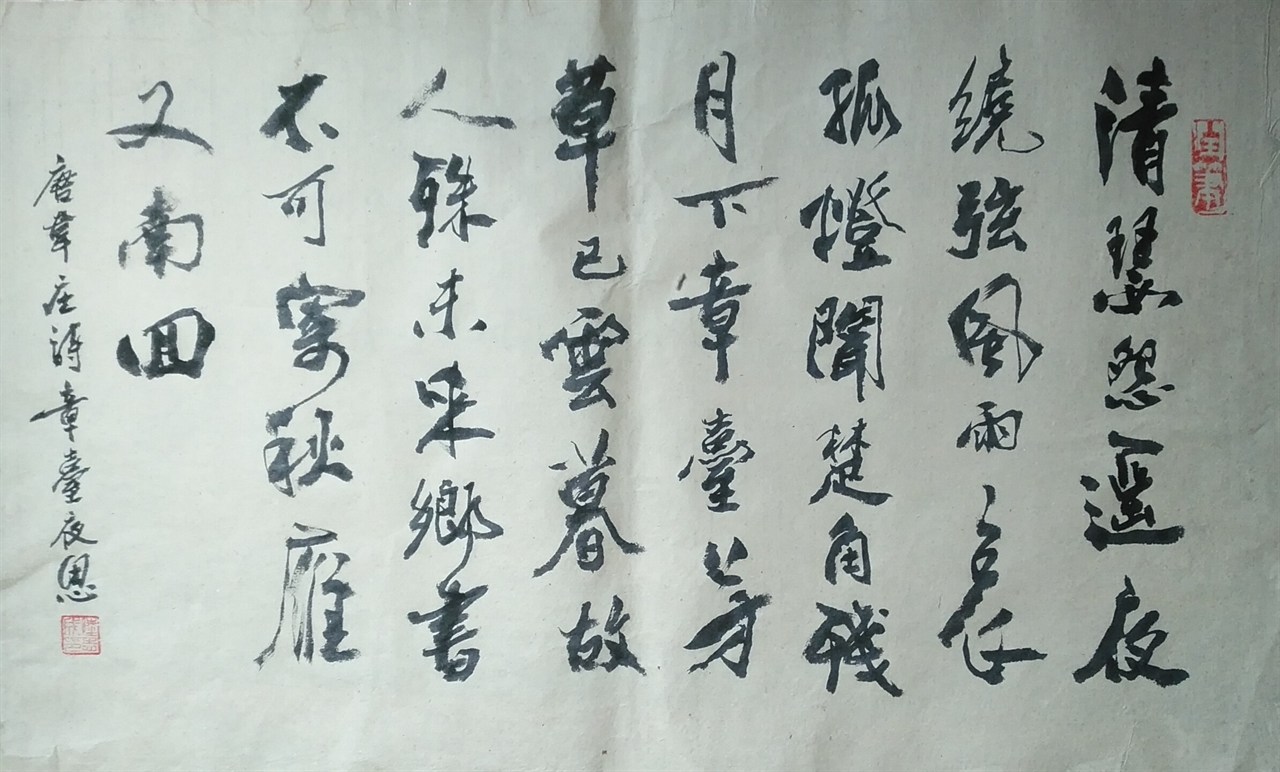 清瑟怨遥夜
繞弦風雨哀
孤燈聞楚角殘
月下章臺芳
草已雲暮故
人殊未来鄉書
不可寄秋雁
又南回
唐韋庄詩章臺夜思